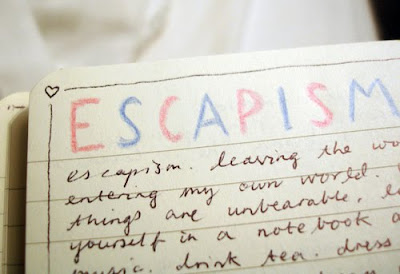 ESCAPISM
escapism. leaving the wo
entering my own world.
things are unbearable,
yourself in a notebook
music. drink tea. dress